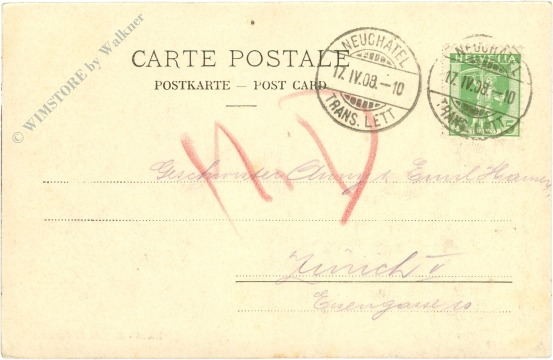 © WIMSTORE by Walkner
CARTE POSTALE
POSTKARTE — POST CARD
NEUCHATEL
17.IV.08.-10
TRANS. LETT
NEUCHATEL
17.IV.08.-10
TRANS. LETT
HELVETIA
5
Geschwister & Emil
Zürich V